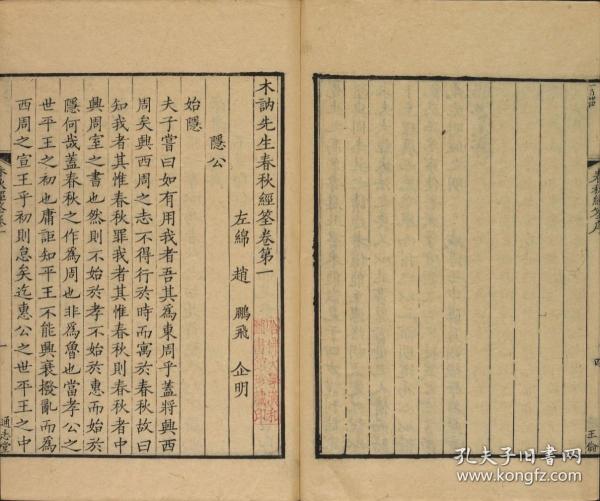 春秋經筌序
四
王倫
木訥先生春秋經筌卷第一
左綿 趙 鵬飛 企明
隱公
始隱
夫子嘗曰如有用我者吾其為東周乎蓋將興西
周矣興西周之志不得行於時而寓於春秋故曰
知我者其惟春秋罪我者其惟春秋則春秋者中
興周室之書也然則不始於孝不始於惠而始於
隱何哉蓋春秋之作為周也非為魯也當孝公之
世平王之初也庸詎知平王不能興衰撥亂而為
西周之宣王乎初則息矣迄惠公之世平王之中
春秋經筌卷一
一
通志堂
孔夫子旧书网
www.kongfz.com